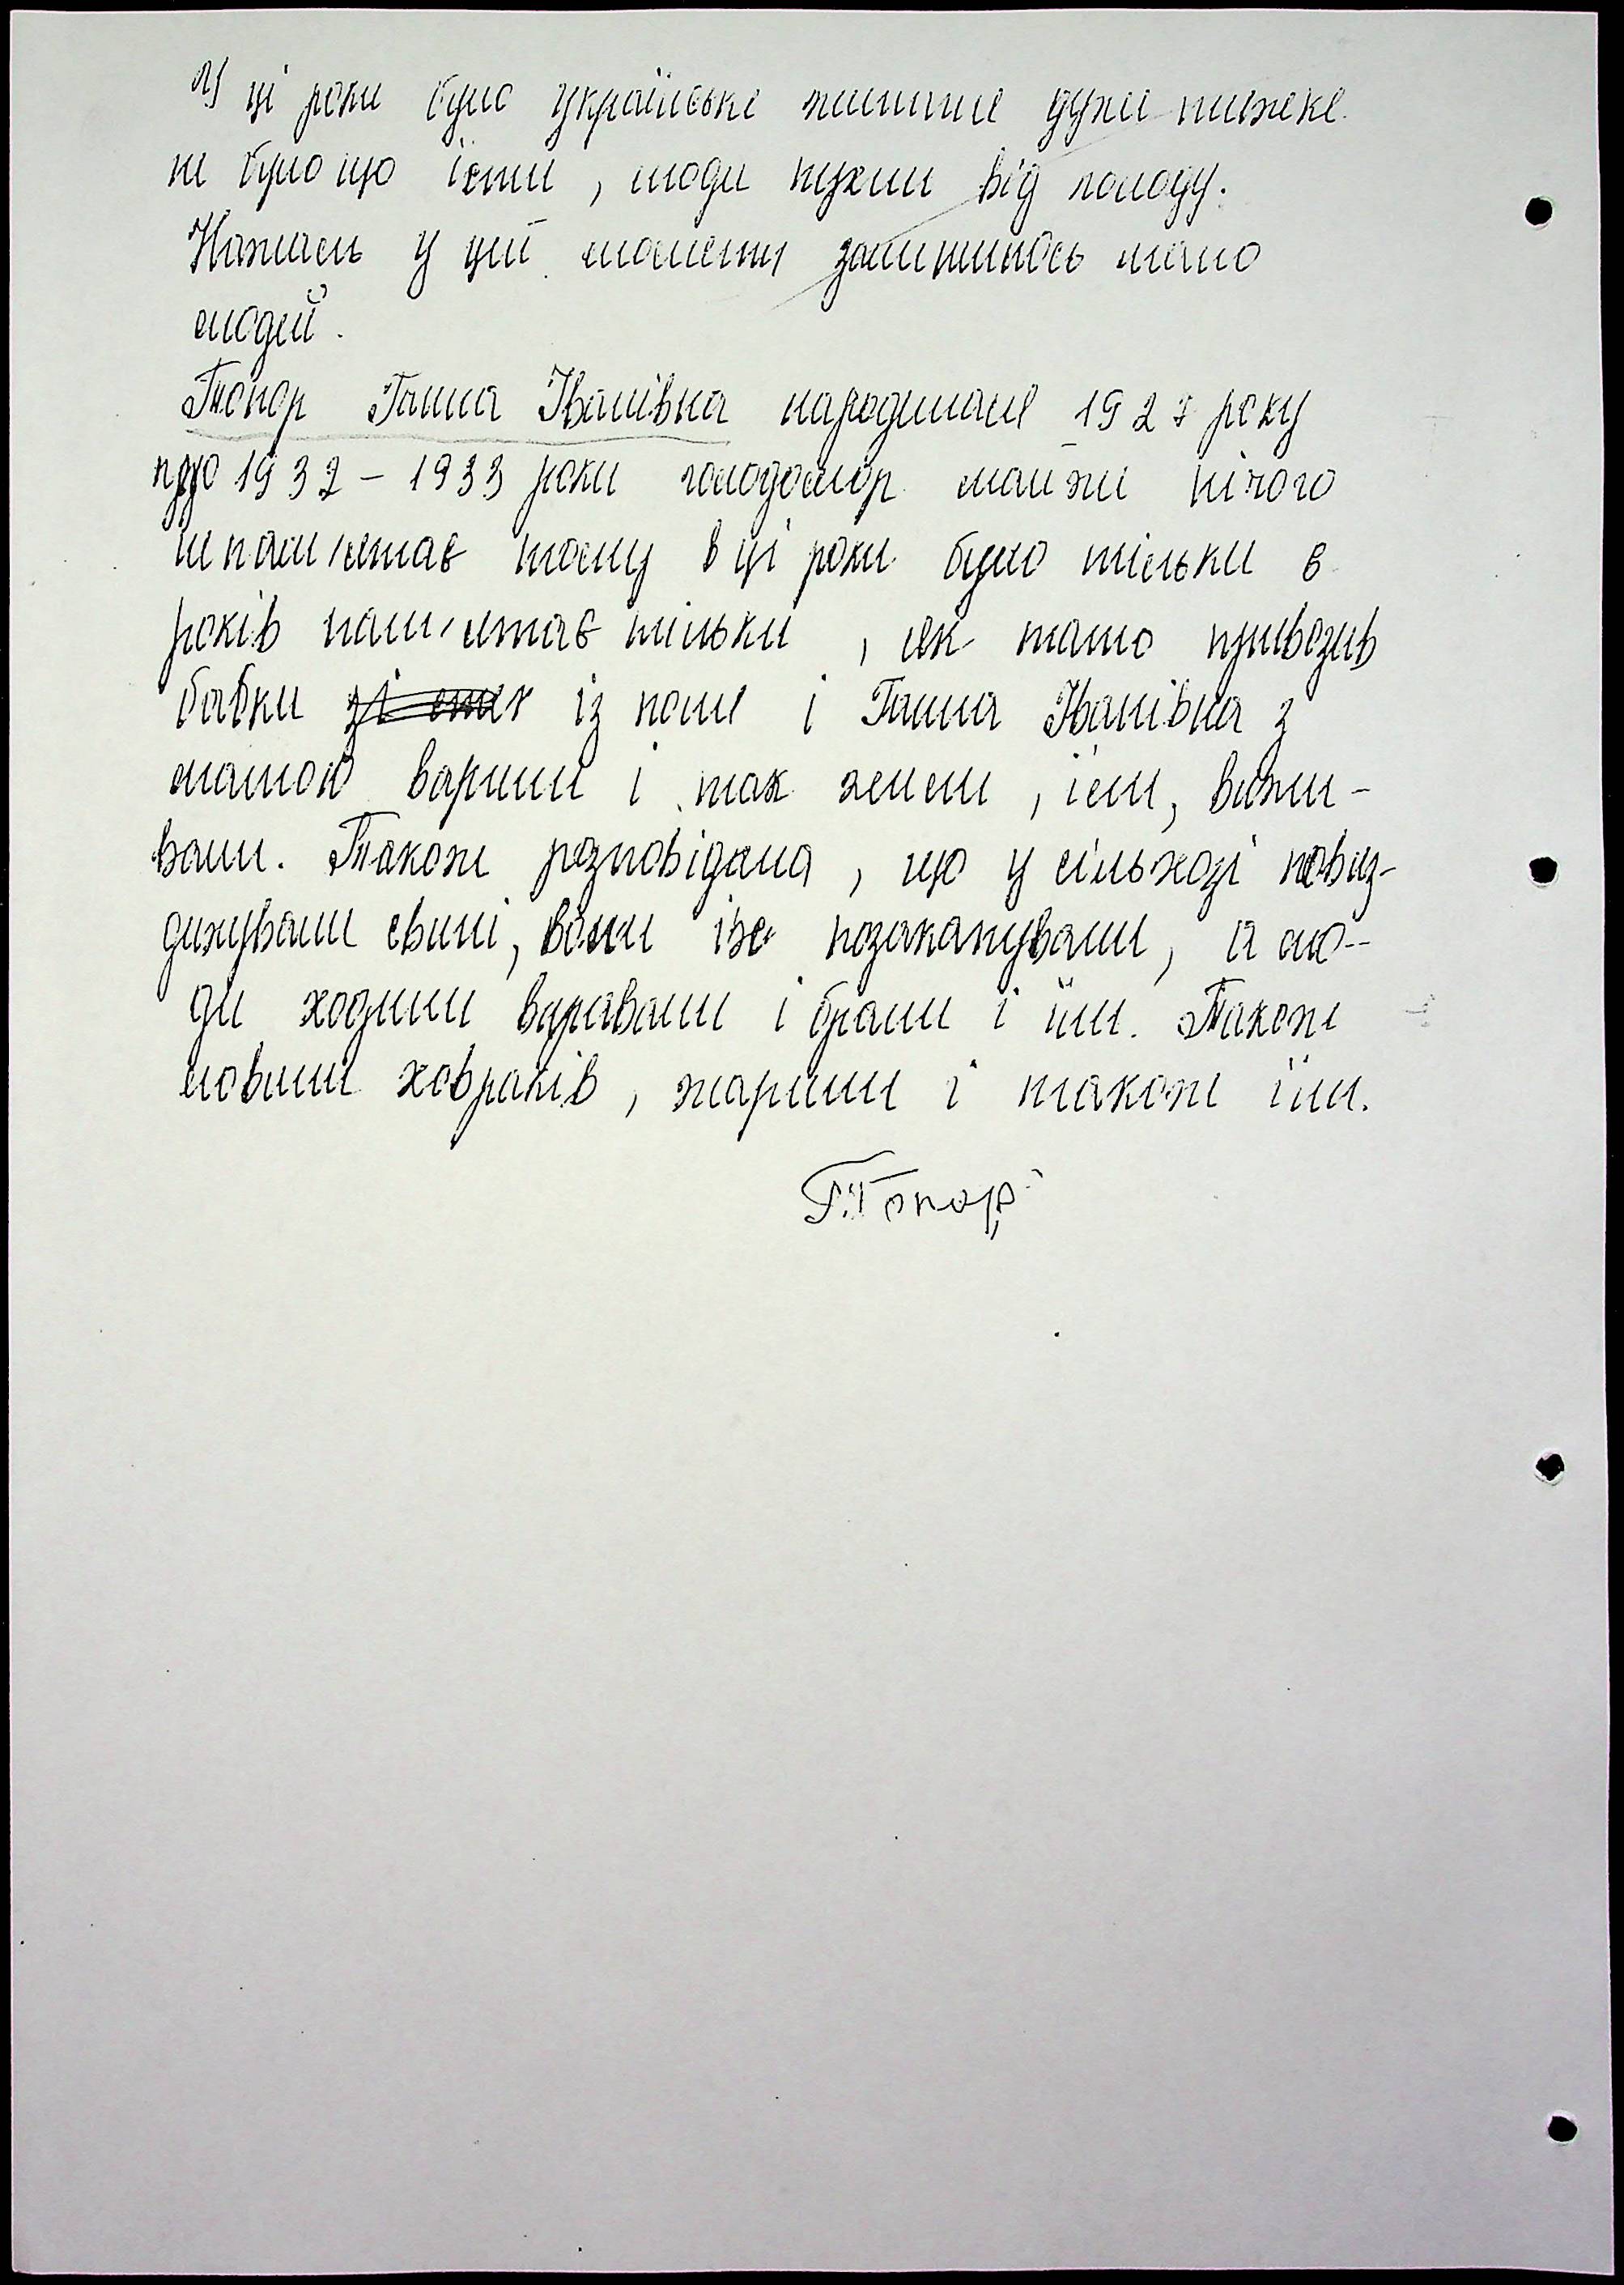 У ці роки було українське життя дуже тяжке.
не було що їсти, люди пухли від голоду.
Нажаль у цій моменти залишилось мало
людей.
Топор Ганна Іванівна народилася 1927 року
про 1932 - 1933 роки голодомор майже нічого
не пам'ятає тому в ці роки було тільки 6
років пам'ятає тільки, як тато привозив
бабки із поля і Ганна Іванівна з
мамою варили і так жели, їли, вижи-
вали. Також розповідала, що у сільхозі повиз-
дихували свині, вони їх позакапували, а лю-
ди ходили виривали і брали і їли. Також
ловили ховрахів, жарили і також їли.
Г. Топор